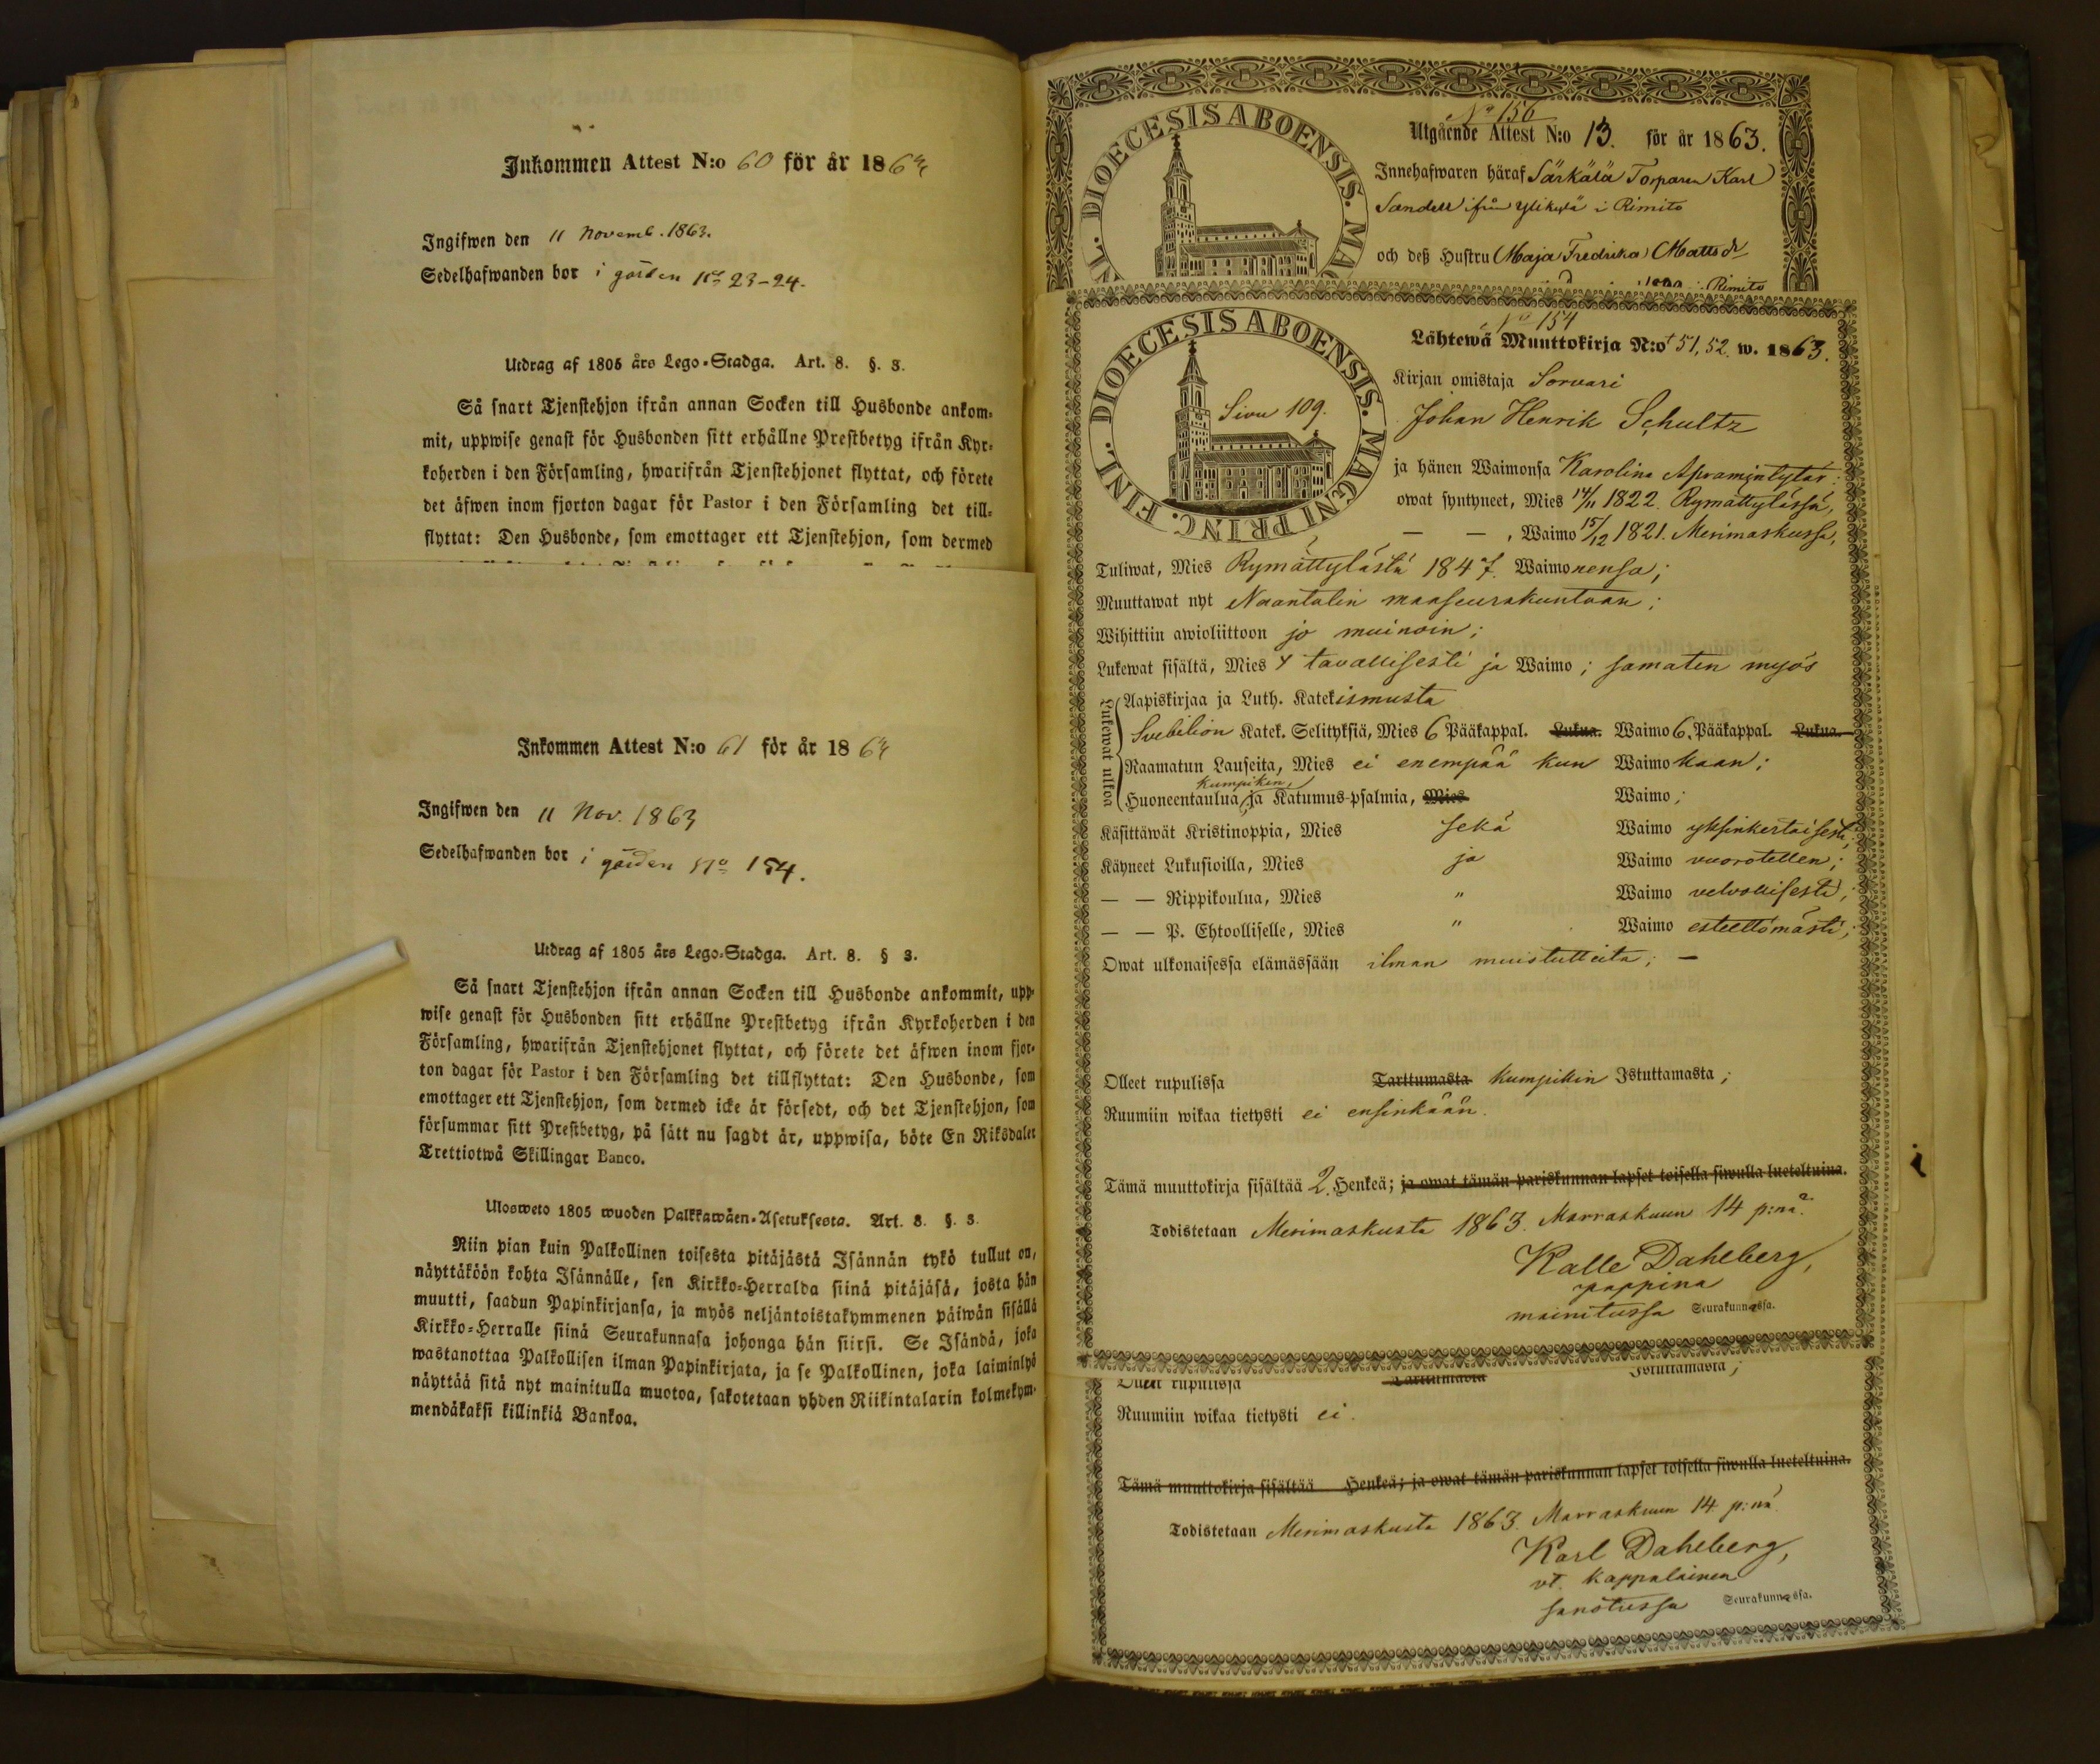 Inkommen Attest N:o 60 för år 1863
Ingifwen den 11 Novemb. 1863.
Sedelhafwanden bor i gården No 23-24.
Utdrag af 1805 års Lego-Stadga. Art. 8. §. 3.
Så snart Tjenstehjon ifrån annan Socken till Husbonde ankom-
mit, uppwise genast för Husbonden sitt erhållne Prestbetyg ifrån Kyr-
koherden i den Församling, hwarifrån Tjenstehjonet flyttat, och förete
det äfwen inom fjorton dagar för Pastor i den Församling det till-
flyttat: Den Husbonde, som emottager ett Tjenstehjon, som dermed
Inkommen Attest N:o 61 för år 1863
Ingifwen den 11 Nov. 1863
Sedelhafwanden bor i gården No 154.
Utdrag af 1805 års Lego-Stadga. Art. 8. § 3.
Så snart Tjenstehjon ifrån annan Socken till Husbonde ankommit, upp-
wise genast för Husbonden sitt erhållne Prestbetyg ifrån Kyrkoherden i den
Församling, hwarifrån Tjenstehjonet flyttat, och förete det äfwen inom fjor-
ton dagar för Pastor i den Församling det tillflyttat: Den Husbonde, som
emottager ett Tjenstehjon, som dermed icke är försedt, och det Tjenstehjon, som
försummar sitt Prestbetyg, på sätt nu sagdt är, uppwisa, böte En Riksdaler
Trettiotwå Skillingar Banco.
Ulosweto 1805 wuoden Palkkawäen-Asetuksesta. Art. 8. §. 3.
Niin pian kuin Palkollinen toisesta pitäjästä Isännän tykö tullut on,
näyttäköön kohta Isännälle, sen Kirkko-Herralda siinä pitäjäsä, josta hän
muutti, saadun Papinkirjansa, ja myös neljäntoistakymmenen päiwän sisällä
Kirkko-Herralle siinä Seurakunnasa johonga hän siirsi. Se Isändä, joka
wastanottaa Palkollisen ilman Papinkirjata, ja se Palkollinen, joka laiminlyö
näyttää sitä nyt mainitulla muotoa, sakotetaan yhden Riikintalarin kolmekym-
mendäkaksi killinkiä Bankoa.
No 156
Utgående Attest N:o 13. för år 1863.
DIOECESIS ABOENSIS. MAG
Innehafwaren häraf Särkälä Torparen Karl
Sandell ifrån Ylikylä i Rimito
och deß Hustru Maja Fredrika Matts dr
Rimito
No 154
Lähtewä Muuttokirja N:ot 51, 52. w. 1863.
DIOECESIS ABOENSIS. MAGNI PRINC. FINL.
Sivu 109.
Kirjan omistaja Sorvari
Johan Henrik Schultz
ja hänen Waimonsa Karolina Apramintytär:
owat syntyneet, Mies 14/11 1822. Rymättylässä,
— — , Waimo 15/12 1821. Merimaskussa,
Tuliwat, Mies Rymättylästä 1847. Waimonensa;
Muuttawat nyt Naantalin maaseurakuntaan;
Wihittiin awioliittoon jo muinoin;
Lukewat sisältä, Mies tavallisesti ja Waimo; samaten myös
Lukewat ulkoa
Aapiskirjaa ja Luth. Katekismusta
Svebelion Katek. Selityksiä, Mies 6 Pääkappal. Lukua. Waimo 6. Pääkappal. Lukua.
Raamatun Lauseita, Mies ei enempää kun Waimokaan;
kumpikin,
Huoneentaulua ja Katumus-psalmia, Mies Waimo;
Käsittäwät Kristinoppia, Mies sekä Waimo yksinkertaisesti;
Käyneet Lukusioilla, Mies ja Waimo vuorotellen;
— — Rippikoulua, Mies " Waimo velvollisesti;
— — P. Ehtoolliselle, Mies " Waimo esteettömästi;
Owat ulkonaisessa elämässään ilman muistutteita; —
Olleet rupulissa Tarttumasta kumpikin Istuttamasta;
Ruumiin wikaa tietysti ei ensinkään.
Tämä muuttokirja sisältää 2. Henkeä; ja owat tämän pariskunnan lapset toisella siwulla lueteltuina.
Todistetaan Merimaskusta 1863. Marraskuun 14 p:nä.
Kalle Dahlberg,
pappina
mainitussa Seurakunnassa.
Olleet rupulissa Tarttumasta Istuttamasta;
Ruumiin wikaa tietysti ei.
Tämä muuttokirja sisältää Henkeä; ja owat tämän pariskunnan lapset toisella siwulla lueteltuina.
Todistetaan Merimaskusta 1863. Marraskuun 14 p:nä.
Karl Dahlberg,
vt. kappalainen
sanotussa Seurakunnassa.